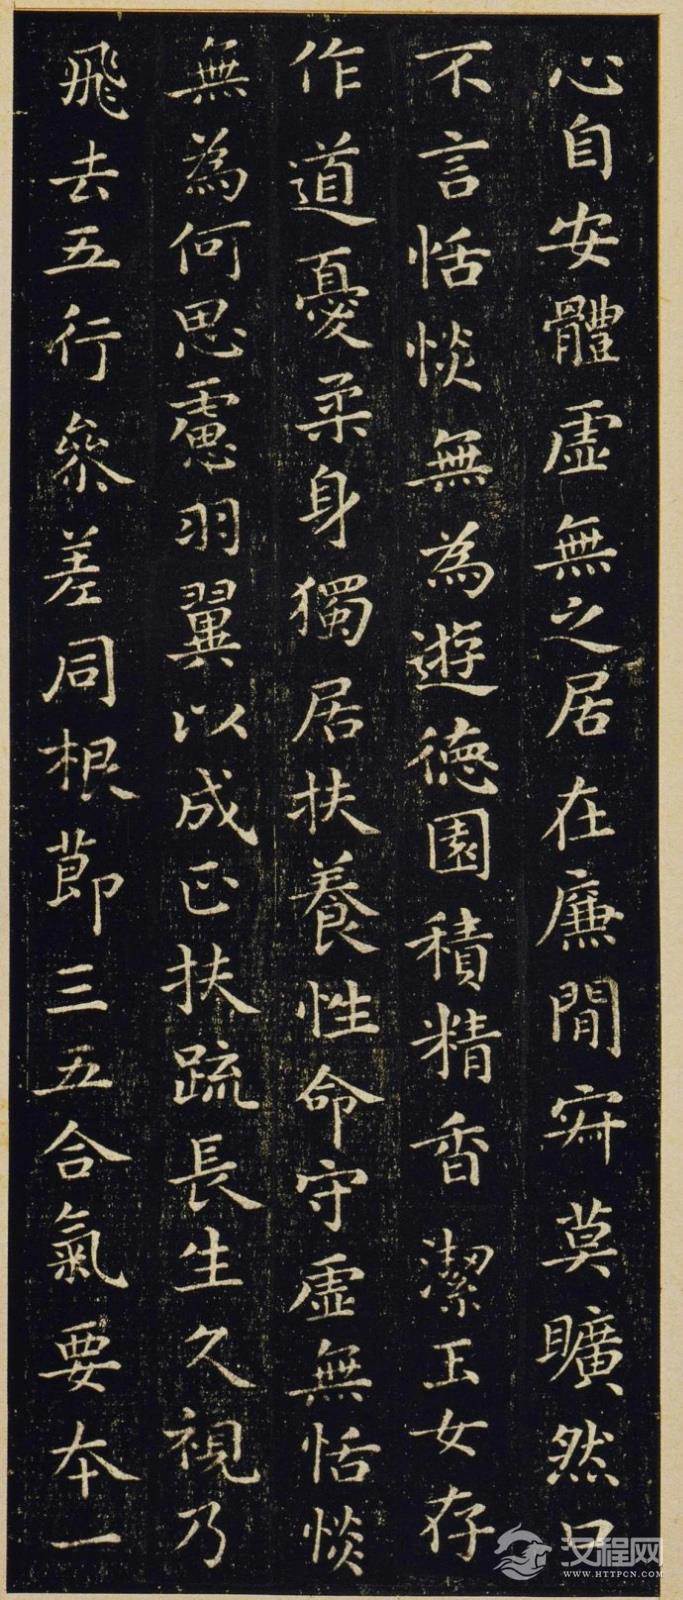 心自安體虛無之居在廉間㝛莫曠然口
不言恬惔無為遊德園積精香潔玉女存
作道憂柔身獨居扶養性命守虛無恬惔
無為何思慮羽翼以成正扶疏長生久視乃
飛去五行參差同根節三五合氣要本一
汉程网
WWW.HTTPCN.COM